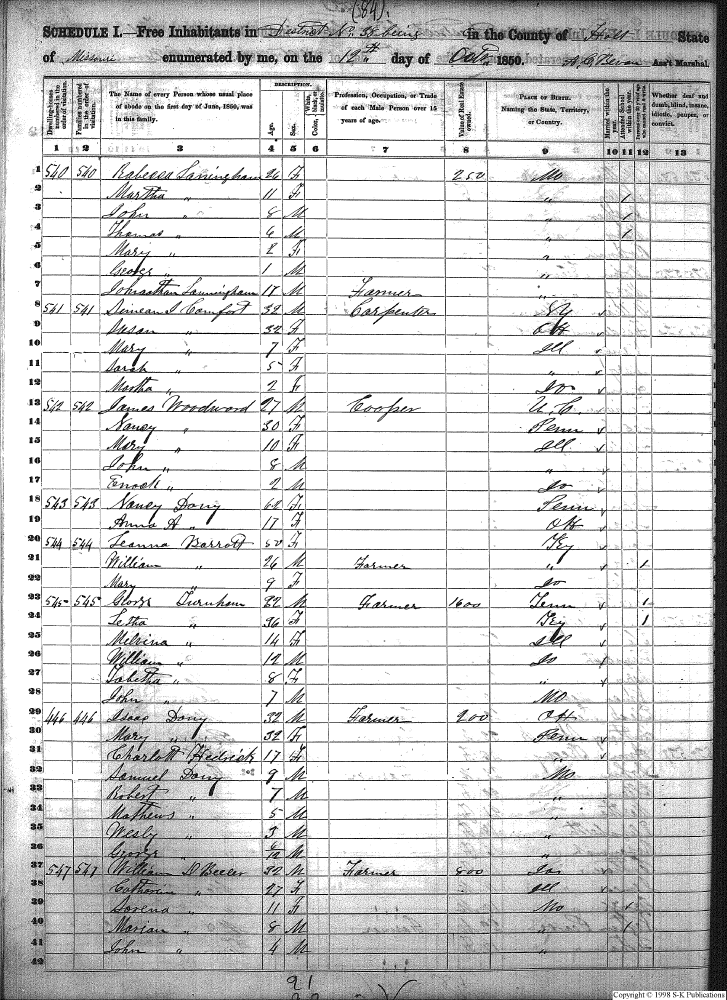 (84)
SCHEDULE I.—Free Inhabitants in District No 32 being in the County of Holt State
of Missouri enumerated by me, on the 12th day of Oct 1850. Ass't Marshal.
Dwelling-houses numbered in the order of visitation.
Families numbered in the order of visitation.
The Name of every Person whose usual place of abode on the first day of June, 1850, was in this family.
DESCRIPTION.
Age.
Sex.
White, black, or mulatto. Color,
Profession, Occupation, or Trade of each Male Person over 15 years of age.
Value of Real Estate owned.
PLACE OF BIRTH. Naming the State, Territory, or Country.
Married within the year.
Attended School within the year.
Whether deaf and dumb, blind, insane, idiotic, pauper, or convict.
1 2 3 4 5 6 7 8 9 10 11 12 13
1 540 540 Rabecca Lanningham 26 F 250 Mo
2 Martha " 11 F " 1
3 John " 8 M " 1
4 Thomas " 6 M " 1
5 Mary " 2 F "
6 George " 1 M "
7 Johnathan Lanningham 17 M Farmer "
8 541 541 Comfort 32 M Carpenter Ky
9 Susan " 32 F OH
10 Mary " 7 F Ill
11 Sarah " 5 F "
12 Martha " 2 F Io
13 542 542 James Woodword 27 M Cooper
14 Nancy " 30 F Penn
15 Mary " 10 F Ill
16 John " 8 M "
17 Enoch " 2 M Io
18 543 543 Nancy Dony 62 F Penn
19 Anna A " 17 F OH
20 544 544 Leanna Barrott 50 F Key
21 William " 26 M Farmer " 1
22 Mary " 9 F Io
23 545 545 George Turnham 22 M Farmer 1600 Tenn 1
24 Letha " 36 F Key 1
25 Melvina " 14 F Ill
26 William " 12 M Io
27 Tabetha " 8 F "
28 John " 7 M MO
29 446 446 Isaac Dony 32 M Farmer 200 OH
30 Mary " 32 F Penn
31 Charlott Hedrick 17 F "
32 Samuel Dony 9 M Mo
33 Robert " 7 M "
34 Mathews " 5 M "
35 Wesly " 3 M "
36 George " 6/12 M "
37 547 547 William D Beeler 32 M Farmer 800 Io
38 Catharine " 27 F Ill
39 Sorena " 11 F Mo 1
40 Marian " 8 M " 1
41 John " 4 M "
42
21
Copyright © 1998 S-K Publications